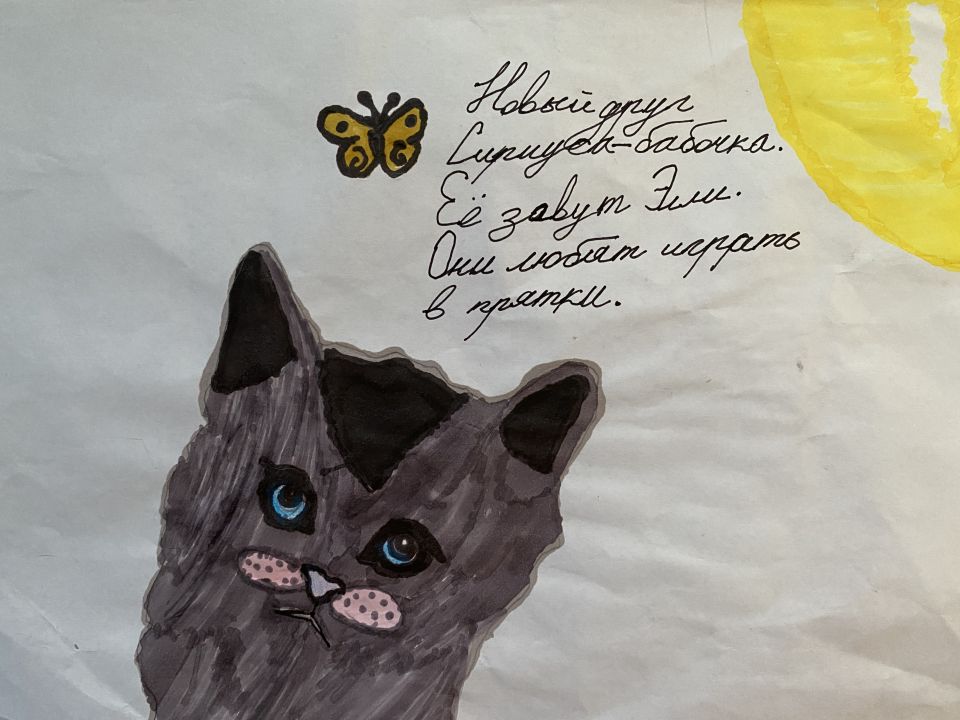 Новый друг
Сириуса-бабочка.
Её зовут Эли.
Они любят играть
в прятки.